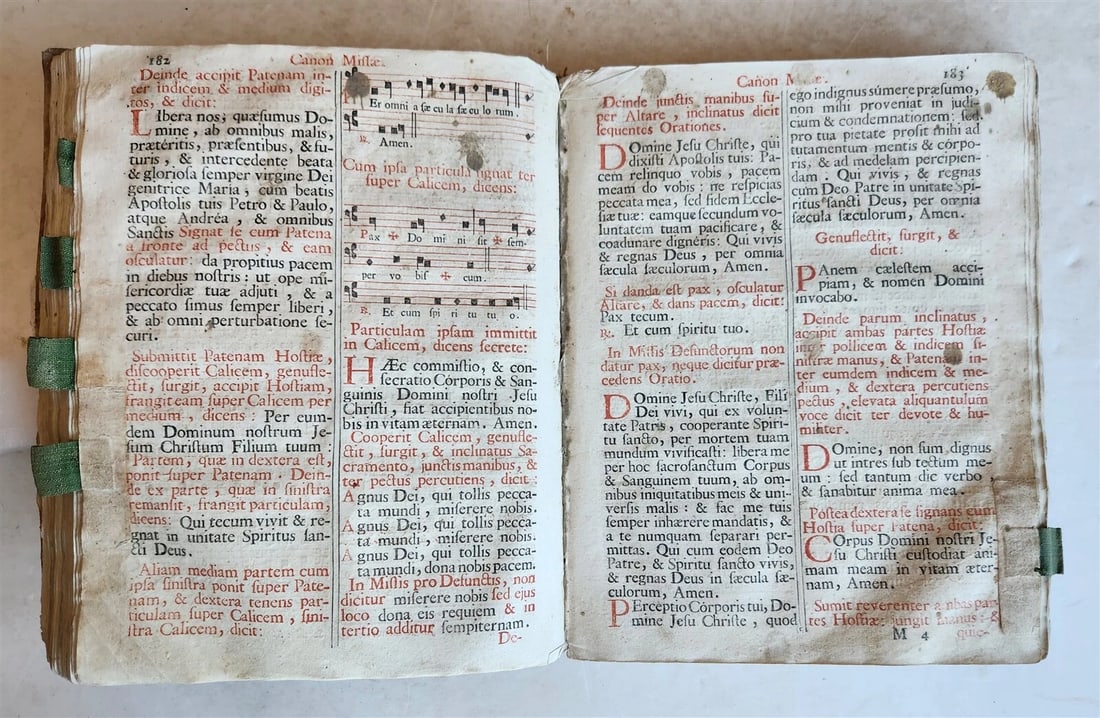 182
Canon Missæ.
Deinde accipit Patenam in-
ter indicem & medium digi-
tos, & dicit:
LIbera nos; quæsumus Do-
mine, ab omnibus malis,
prætéritis, præsentibus, & fu-
turis, & intercedente beata
& gloriosa semper virgine Dei
genitrice Maria, cum beatis
Apostolis tuis Petro & Paulo,
atque Andréa, & omnibus
Sanctis Signat se cum Patena
a fronte ad pectus, & eam
osculatur: da propitius pacem
in diebus nostris: ut ope mi-
sericordiæ tuæ adjuti, & a
peccato simus semper liberi,
& ab omni perturbatione se-
curi.
Submittit Patenam Hostiæ,
discooperit Calicem, genufle-
ctit, surgit, accipit Hostiam,
frangit eam super Calicem per
medium, dicens: Per eum-
dem Dominum nostrum Je-
sum Christum Filium tuum:
Partem, quæ in dextera est,
ponit super Patenam. Dein-
de ex parte, quæ in sinistra
remansit, frangit particulam,
dicens: Qui tecum vivit & re-
gnat in unitate Spiritus san-
cti Deus.
Aliam mediam partem cum
ipsa sinistra ponit super Pate-
nam, & dextera tenens par-
ticulam super Calicem, sini-
stra Calicem, dicit:
Er omni a sæ cu la sæ cu lo rum.
℟. Amen.
Cum ipsa particula signat ter
super Calicem, dicens:
Pax ✠ Do mi ni sit ✠ sem-
per vo bis ✠ cum.
℟. Et cum spi ri tu tu o.
Particulam ipsam immittit
in Calicem, dicens secrete:
HÆc commistio, & con-
secratio Córporis & San-
guinis Domini nostri Jesu
Christi, fiat accipientibus no-
bis in vitam æternam. Amen.
Cooperit Calicem, genufle-
ctit, surgit, & inclinatus Sa-
cramento, junctis manibus, &
ter pectus percutiens, dicit:
Agnus Dei, qui tollis pecca-
ta mundi, miserere nobis.
Agnus Dei, qui tollis pecca-
ta mundi, miserere nobis.
Agnus Dei, qui tollis pecca-
ta mundi, dona nobis pacem.
In Missis pro Defunctis, non
dicitur miserere nobis sed ejus
loco dona eis requiem & in
tertio additur sempiternam.
De-
Canon Missæ.
183
Deinde junctis manibus su-
per Altare, inclinatus dicit
sequentes Orationes.
DOmine Jesu Christe, qui
dixisti Apostolis tuis: Pa-
cem relinquo vobis, pacem
meam do vobis: ne respicias
peccata mea, sed fidem Eccle-
siæ tuæ: eamque secundum vo-
luntatem tuam pacificare, &
coadunare dignéris: Qui vivis
& regnas Deus, per omnia
sæcula sæculorum, Amen.
Si danda est pax, osculatur
Altare, & dans pacem, dicit:
Pax tecum.
℟. Et cum spiritu tuo.
In Missis Defunctorum non
datur pax, neque dicitur præ-
cedens Oratio.
DOmine Jesu Christe, Fili
Dei vivi, qui ex volun-
tate Patris, cooperante Spiri-
tu sancto, per mortem tuam
mundum vivificasti: libera me
per hoc sacrosanctum Corpus
& Sanguinem tuum, ab om-
nibus iniquitatibus meis & uni-
versis malis: & fac me tuis
semper inhærere mandatis, &
a te numquam separari per-
mittas. Qui cum eodem Deo
Patre, & Spiritu sancto vivis,
& regnas Deus in sæcula sæ-
culorum, Amen.
PErceptio Córporis tui, Do-
mine Jesu Christe, quod
ego indignus súmere præsumo,
non mihi proveniat in judi-
cium & condemnationem: sed
pro tua pietate prosit mihi ad
tutamentum mentis & córpo-
ris, & ad medelam percipien-
dam: Qui vivis, & regnas
cum Deo Patre in unitate Spi-
ritus sancti Deus, per omnia
sæcula sæculorum, Amen.
Genuflectit, surgit, &
dicit:
PAnem cælestem acci-
piam, & nomen Domini
invocabo.
Deinde parum inclinatus,
accipit ambas partes Hostiæ
inter pollicem & indicem si-
nistræ manus, & Patenam in-
ter eumdem indicem & me-
dium, & dextera percutiens
pectus, elevata aliquantulum
voce dicit ter devote & hu-
militer.
DOmine, non sum dignus
ut intres sub tectum me-
um: sed tantum dic verbo,
& sanabitur anima mea.
Postea dextera se signans cum
Hostia super Patena, dicit:
COrpus Domini nostri Je-
su Christi custodiat ani-
mam meam in vitam æter-
nam, Amen.
Sumit reverenter ambas par-
tes Hostiæ: jungit manus: &
M 4
quie-